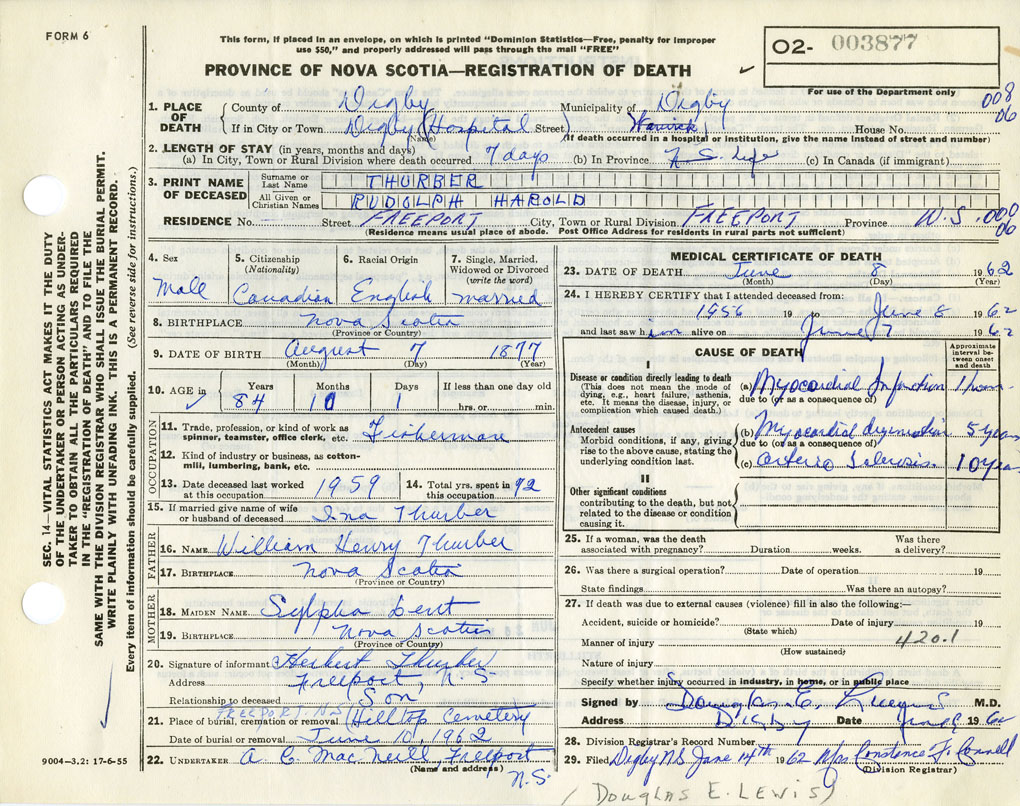 FORM 6
This form, if placed in an envelope, on which is printed "Dominion Statistics—Free, penalty for improper
use $50," and properly addressed will pass through the mail "FREE"
PROVINCE OF NOVA SCOTIA—REGISTRATION OF DEATH
O2- 003877
For use of the Department only
008
06
SEC. 14—VITAL STATISTICS ACT MAKES IT THE DUTY
OF THE UNDERTAKER OR PERSON ACTING AS UNDER-
TAKER TO OBTAIN ALL THE PARTICULARS REQUIRED
IN THE "REGISTRATION OF DEATH" AND TO FILE THE
SAME WITH THE DIVISION REGISTRAR WHO SHALL ISSUE THE BURIAL PERMIT.
WRITE PLAINLY WITH UNFADING INK. THIS IS A PERMANENT RECORD.
Every item of information should be carefully supplied. (See reverse side for instructions.)
1. PLACE OF DEATH County of Digby Municipality of Digby
If in City or Town Digby (Hospital Street) Warwick House No.
(Name) (If death occurred in a hospital or institution, give the name instead of street and number)
2. LENGTH OF STAY (in years, months and days)
(a) In City, Town or Rural Division where death occurred 7 days (b) In Province N.S. Life (c) In Canada (if immigrant)
3. PRINT NAME OF DECEASED Surname or Last Name THURBER
All Given or Christian Names RUDOLPH HAROLD
RESIDENCE No. Street FREEPORT City, Town or Rural Division FREEPORT Province N.S. 000
06
(Residence means usual place of abode. Post Office Address for residents in rural parts not sufficient)
4. Sex Male
5. Citizenship (Nationality) Canadian
6. Racial Origin English
7. Single, Married, Widowed or Divorced (write the word) married
8. BIRTHPLACE Nova Scotia
(Province or Country)
9. DATE OF BIRTH August 7 1877
(Month) (Day) (Year)
10. AGE in Years 84 Months 10 Days 1 If less than one day old hrs. or min.
OCCUPATION
11. Trade, profession, or kind of work as spinner, teamster, office clerk, etc. Fisherman
12. Kind of industry or business, as cotton-mill, lumbering, bank, etc.
13. Date deceased last worked at this occupation 1959
14. Total yrs. spent in this occupation 42
15. If married give name of wife or husband of deceased Ina Thurber
FATHER
16. NAME William Henry Thurber
17. BIRTHPLACE Nova Scotia
(Province or Country)
MOTHER
18. MAIDEN NAME Sylpha Lent
19. BIRTHPLACE Nova Scotia
(Province or Country)
20. Signature of informant Herbert Thurber
Address Freeport, N.S.
Relationship to deceased Son
FREEPORT NS
21. Place of burial, cremation or removal (Hilltop Cemetery
Date of burial or removal June 10, 1962
22. UNDERTAKER A. C. MacNeill, Freeport
(Name and address) N.S.
9004—3.2: 17-6-55
MEDICAL CERTIFICATE OF DEATH
23. DATE OF DEATH June 8 1962
(Month) (Day) (Year)
24. I HEREBY CERTIFY that I attended deceased from:
1956 19 to June 8 1962
and last saw him alive on June 7 1962
CAUSE OF DEATH
Approximate interval between onset and death
I
Disease or condition directly leading to death
(This does not mean the mode of dying, e.g., heart failure, asthenia, etc. It means the disease, injury, or complication which caused death.)
(a) Myocardial Infarction
due to (or as a consequence of)
Antecedent causes
Morbid conditions, if any, giving rise to the above cause, stating the underlying condition last.
(b) Myocardial degeneration 5 years
due to (or as a consequence of)
(c) Arterio Sclerosis. 10 years
II
Other significant conditions
contributing to the death, but not related to the disease or condition causing it.
25. If a woman, was the death associated with pregnancy? Duration weeks. Was there a delivery?
26. Was there a surgical operation? Date of operation 19
State findings Was there an autopsy?
27. If death was due to external causes (violence) fill in also the following:—
Accident, suicide or homicide? Date of injury 19
(State which)
420.1
Manner of injury
(How sustained)
Nature of injury
Specify whether injury occurred in industry, in home, or in public place
Signed by Douglas E. Lewis M.D.
Address Digby Date June 1962
28. Division Registrar's Record Number
29. Filed Digby NS June 14th 1962 Mrs. Constance F. Connell
(Division Registrar)
(DOUGLAS E. LEWIS)